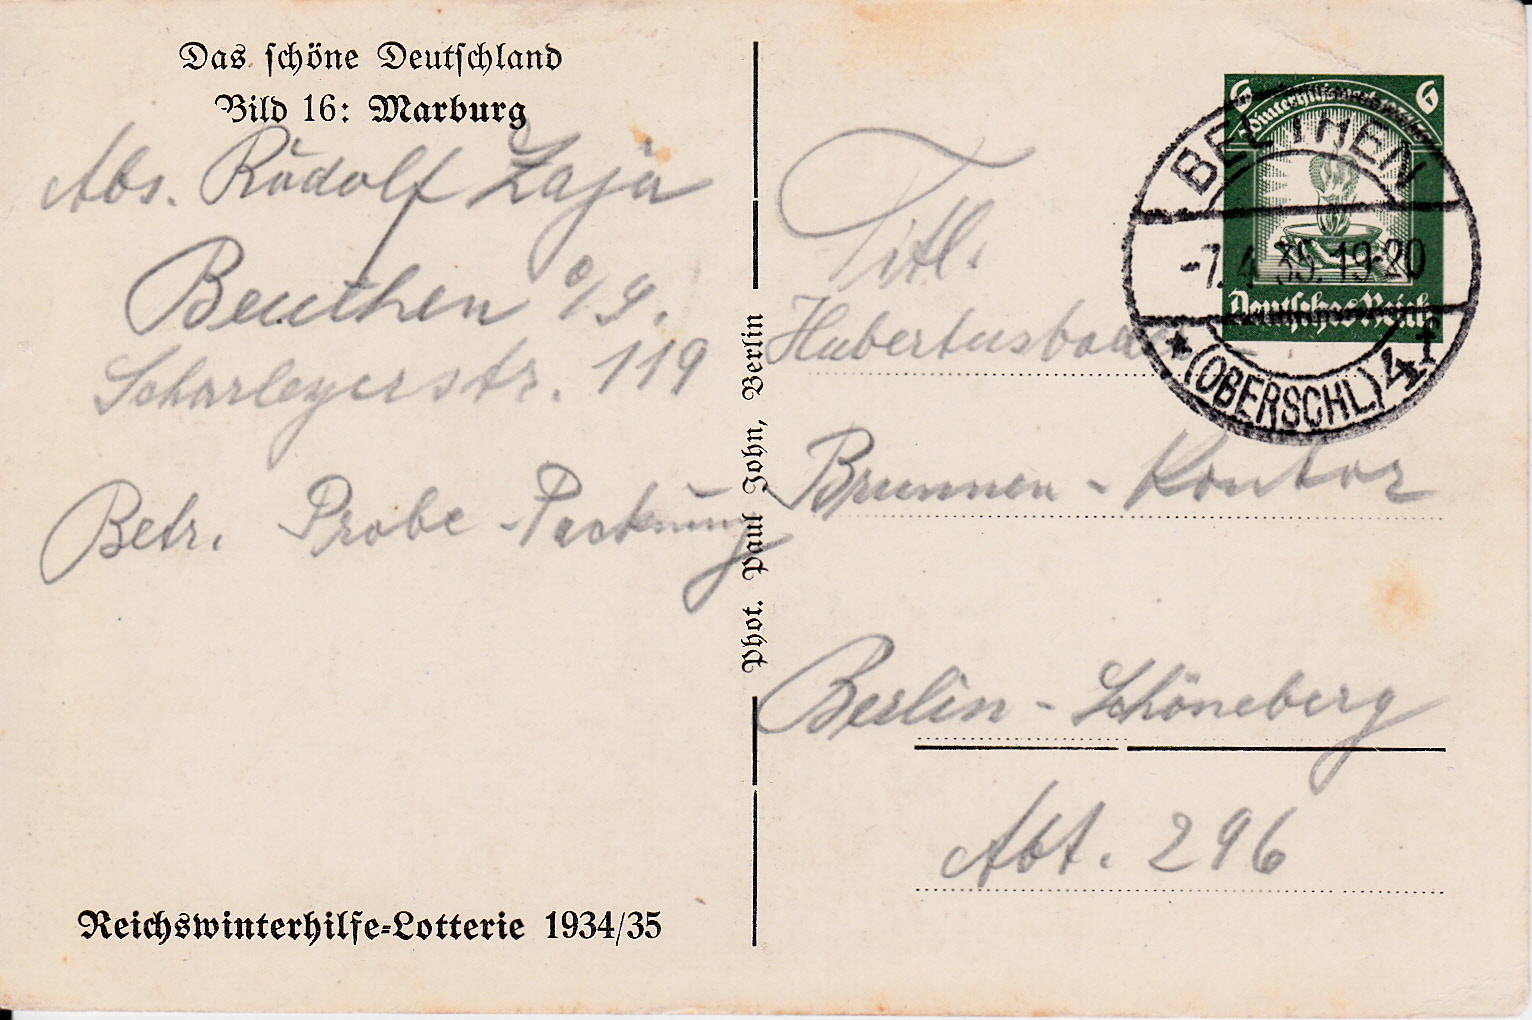 Das schöne Deutschland
Bild 16: Marburg
Abs. Rudolf Zaja
Beuthen O/S.
Scharleyerstr. 119
Betr. Probe-Packung
Reichswinterhilfe-Lotterie 1934/35
Phot. Paul John, Berlin
6 6
Winterhilfswerk
Deutsches Reich
BEUTHEN
-7.4.35.19-20
* (OBERSCHL) 4f
Titl.
Hubertusbader
Brunnen-Kontor
Berlin-Schöneberg
Abt. 296